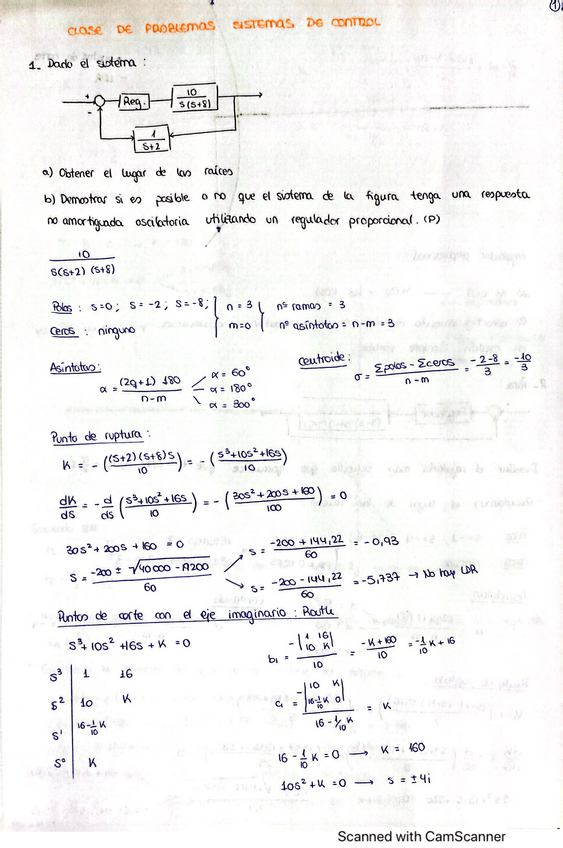 1
CLASE DE PROBLEMAS SISTEMAS DE CONTROL
1. Dado el sistema :
+ - Reg. 10 / s(s+8)
1 / s+2
a) Obtener el lugar de las raíces
b) Demostrar si es posible o no que el sistema de la figura tenga una respuesta
no amortiguada oscilatoria utilizando un regulador proporcional. (P)
10 / s(s+2)(s+8)
Polos : s=0 ; s= -2 ; s= -8 ; n = 3 nº ramas = 3
Ceros : ninguno m=0 nº asíntotas = n-m = 3
Asíntotas :
α = (2q+1) 180 / n-m
α = 60°
α = 180°
α = 300°
Centroide :
σ = Σpolos - Σceros / n-m = -2-8 / 3 = -10 / 3
Punto de ruptura :
K = - ( (s+2)(s+8)s / 10 ) = - ( s³+10s²+16s / 10 )
dK / ds = - d / ds ( s³+10s²+16s / 10 ) = - ( 30s²+200s+160 / 100 ) = 0
30s²+200s+160 = 0
s = -200 ± √40000 - 19200 / 60
s = -200 + 144,22 / 60 = -0,93
s = -200 - 144,22 / 60 = -5,737 → No hay LDR
Puntos de corte con el eje imaginario : Routh
s³+10s²+16s+K = 0
s³ 1 16
s² 10 K
s¹ 16-1/10 K
s⁰ K
b₁ = - |1 16 10 K| / 10 = -K+160 / 10 = -1/10 K + 16
c₁ = - |10 K 16-1/10K 0| / 16 - 1/10 K = K
16 - 1/10 K = 0 → K = 160
10s²+K = 0 → s = ±4i
Scanned with CamScanner